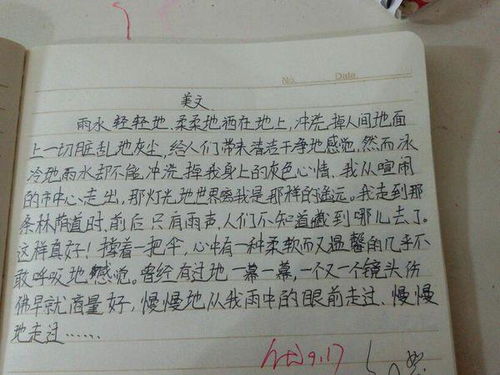 No. Date
美文
雨水轻轻地、柔柔地洒在地上，冲洗掉人间地面
上一切脏乱地灰尘，给人们带来洁洁干净地感觉，然而冰
冷地雨水却不能冲洗掉我身上的灰色心情，我从喧闹
的市中心走出，那灯光地世界离我是那样的遥远。我走到那
条林荫道时，前后只有雨声，人们不知道藏到哪儿去了。
这样真好！撑着一把伞，心中有一种柔软而又温馨的几乎不
敢呼吸地感觉。曾经有过地一幕一幕，一个又一个镜头仿
佛早就商量好，慢慢地从我雨中的眼前走过、慢慢
地走过……
9.17